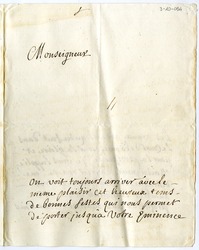 Monseigneur
On voit toujours arriver avec le
meme plaisir cet heureux tems
de bonnes festes qui nous permet
de porter jusqua Votre Eminence